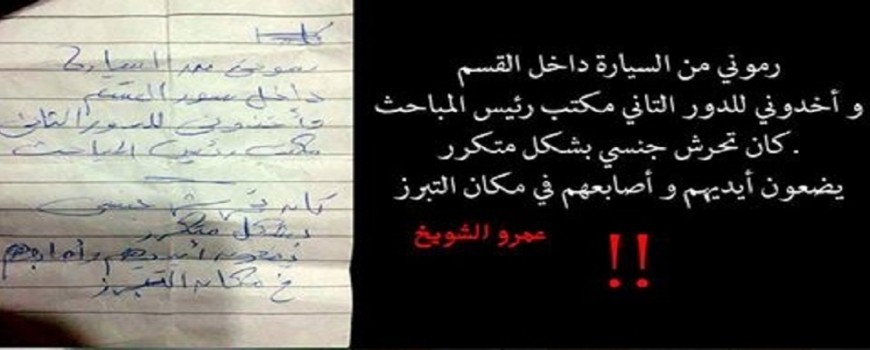 رموني من السيارة
داخل سور القسم
وأخدوني للدور التاني
مكتب رئيس المباحث
كان تحرش جنسي
بشكل متكرر
يضعون أيديهم وأصابعهم
في مكان التبرز
رموني من السيارة داخل القسم
و أخدوني للدور التاني مكتب رئيس المباحث
. كان تحرش جنسي بشكل متكرر
يضعون أيديهم و أصابعهم في مكان التبرز
عمرو الشويخ
!!